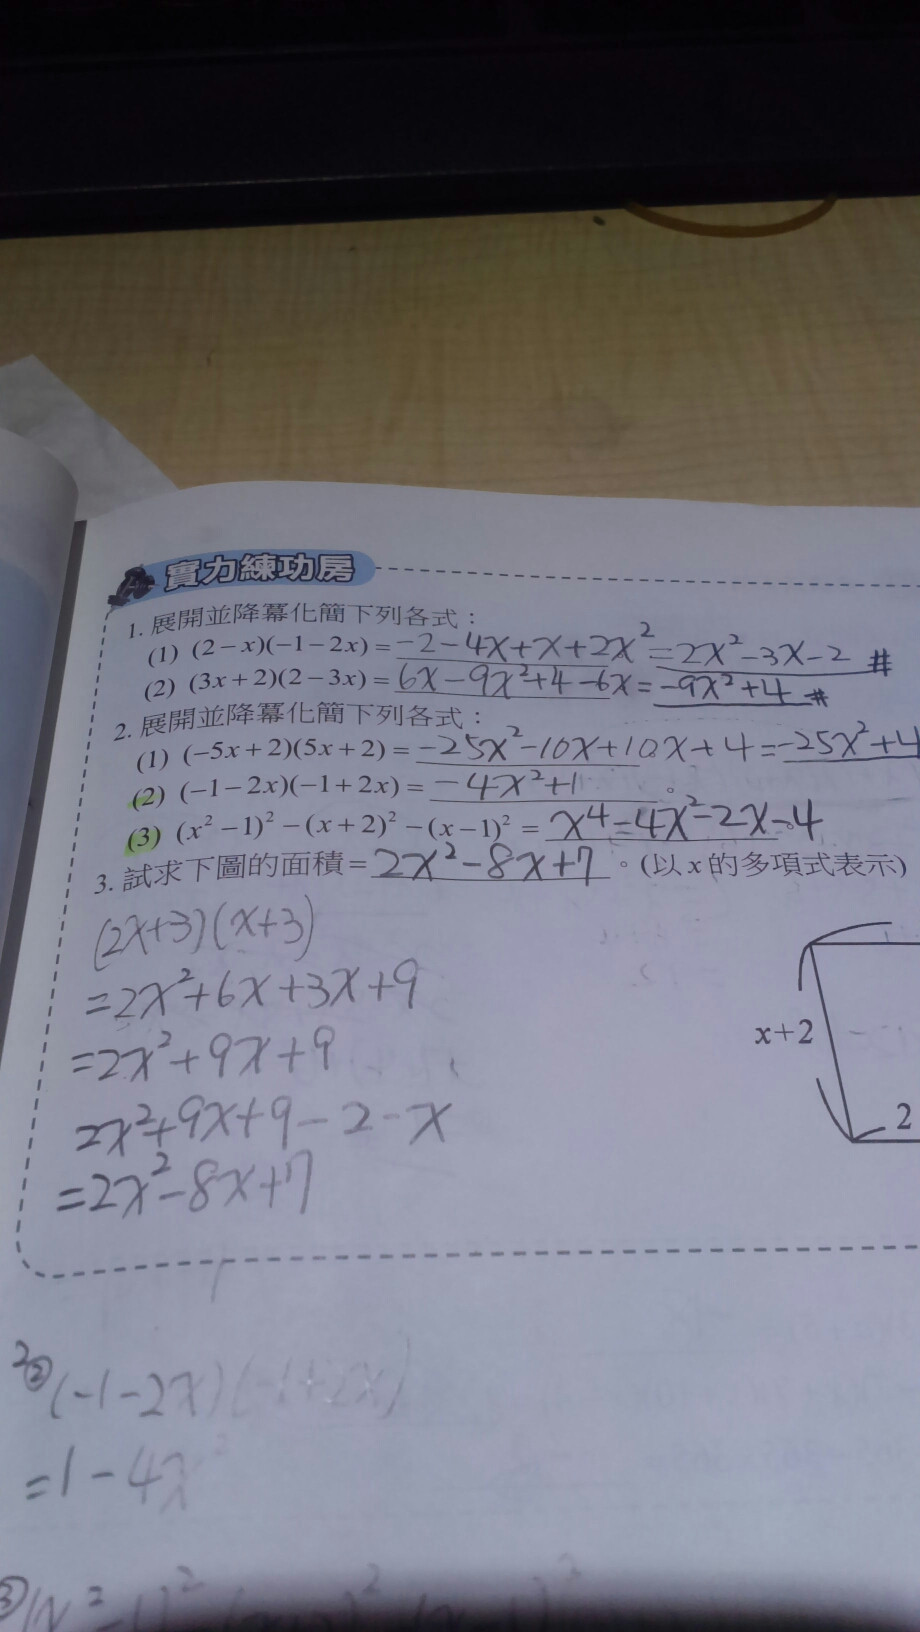 實力練功房
1. 展開並降冪化簡下列各式：
(1) (2-x)(-1-2x)=-2-4x+x+2x²=2x²-3x-2 #
(2) (3x+2)(2-3x)=6x-9x²+4-6x=-9x²+4 #
2. 展開並降冪化簡下列各式：
(1) (-5x+2)(5x+2)=-25x²-10x+10x+4=-25x²+4
(2) (-1-2x)(-1+2x)=-4x²+1。
(3) (x²-1)²-(x+2)²-(x-1)²=x⁴-4x²-2x-4。
3. 試求下圖的面積=2x²-8x+7。(以x的多項式表示)
(2x+3)(x+3)
=2x²+6x+3x+9
=2x²+9x+9
2x²+9x+9-2-x
=2x²-8x+7
x+2
2
2② (-1-2x)(-1+2x)
=1-4x²
③ (x²-1)²